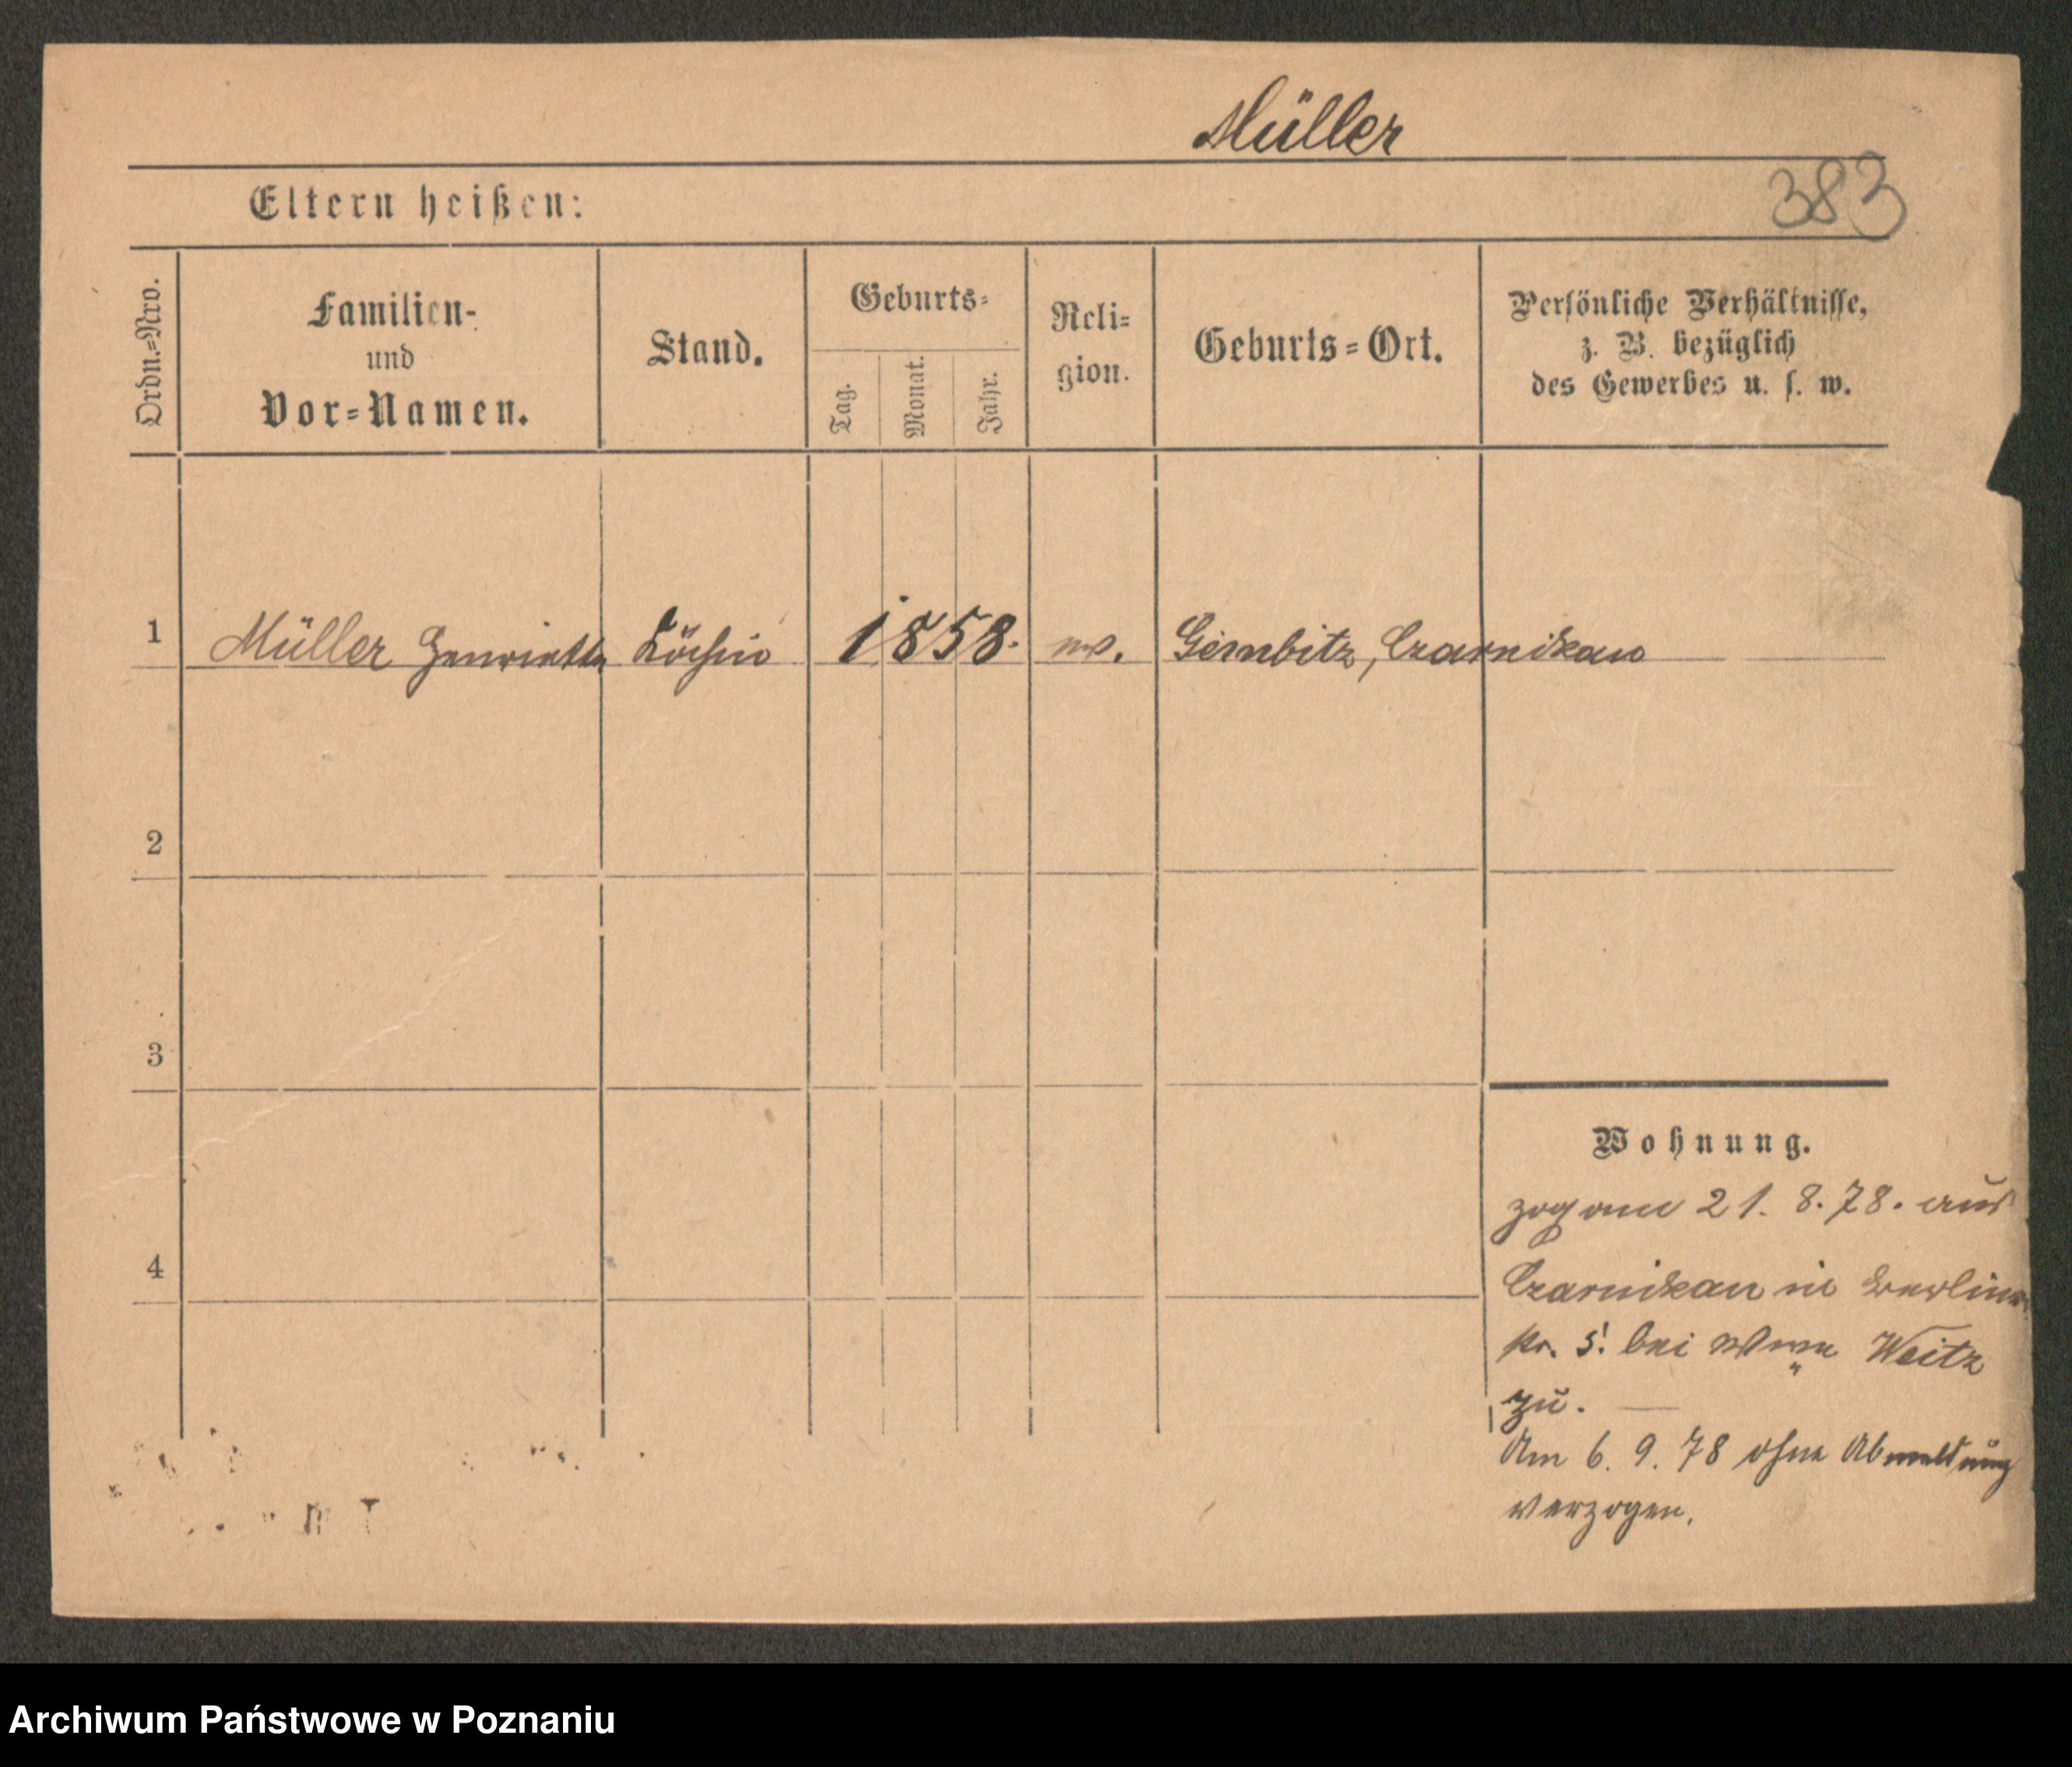 Müller
383
Eltern heißen:
Ordn.=Nro.
Familien-
und
Vor=Namen.
Stand.
Geburts=
Tag.
Monat.
Jahr.
Reli=
gion.
Geburts=Ort.
Persönliche Verhältnisse,
z. B. bezüglich
des Gewerbes u. s. w.
1 Müller Henriette Köchin 1858. Gembitz, Czarnikau
2
3
4
Wohnung.
zog am 21. 8. 78. aus
Czarnikau in Berliner
str. 5. bei Wwe Weitz
zu.
Am 6. 9. 78 ohne Abmeldung
verzogen.
Archiwum Państwowe w Poznaniu